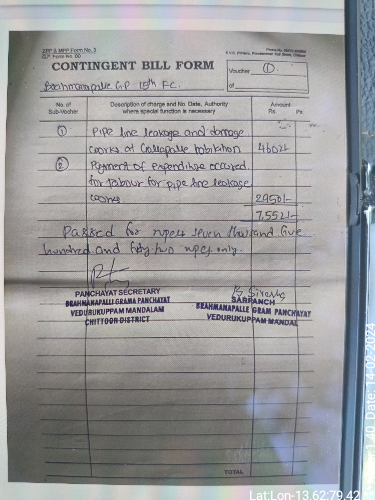 ZPP & MPP Form No. 3
G.P. Form No. 60
CONTINGENT BILL FORM
Voucher ①
of
Brahmanapalle G.P 15th F.C.
No. of Sub-Voucher
Description of charge and No. Date, Authority where special function is necessary
Amount
Rs. Ps.
① Pipe line leakage and damage
works at Gollapalle 4602/-
② Payment of expenditure occured
for labour for pipe line leakage
works 2950/-
7,552/-
Passed for rupees seven thousand five
hundred and fifty two rupees only.
PANCHAYAT SECRETARY
BRAHMANAPALLI GRAMA PANCHAYAT
VEDURUKUPPAM MANDALAM
CHITTOOR DISTRICT
SARPANCH
BRAHMANAPALLE GRAM PANCHAYAT
VEDURUKUPPAM MANDAL
TOTAL
Date:14-02-2024
Lat:Lon-13.62:79.42